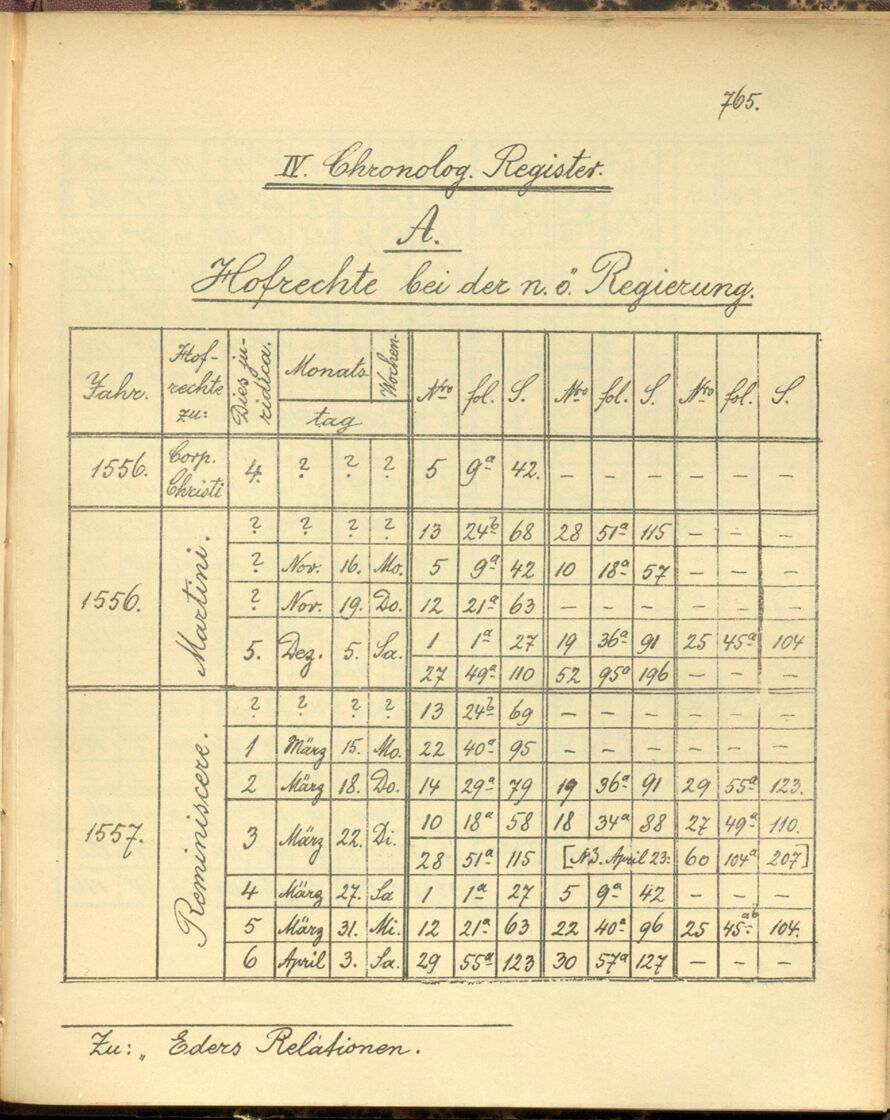 765.
IV. Chronolog. Register.
A.
Hofrechte bei der n. ö. Regierung.
Jahr. Hof-rechte zu: Dies ju-ridica. Monats- Wochen- tag Nro fol. S. Nro fol. S. Nro fol. S.
1556. Corp. Christi 4. ? ? ? 5 9a 42. — — — — — —
1556. Martini. ? ? ? ? 13 24b 68 28 51a 115 — — —
? Nov. 16. Mo. 5 9a 42 10 18a 57 — — —
? Nov. 19. Do. 12 21a 63 — — — — — —
5. Dez. 5. Sa. 1 1a 27 19 36a 91 25 45a 104
27 49a 110 52 95a 196 — — —
1557. Reminiscere. ? ? ? ? 13 24b 69 — — — — — —
1 März 15. Mo. 22 40a 95 — — — — — —
2 März 18. Do. 14 29a 79 19 36a 91 29 55a 123.
3 März 22. Di. 10 18a 58 18 34a 88 27 49a 110.
28 51a 115 [NB. April 23: 60 104a 207]
4 März 27. Sa 1 1a 27 5 9a 42 — — —
5 März 31. Mi. 12 21a 63 22 40a 96 25 45ab 104.
6 April 3. Sa. 29 55a 123 30 57a 127 — — —
Zu: „ Eders Relationen.